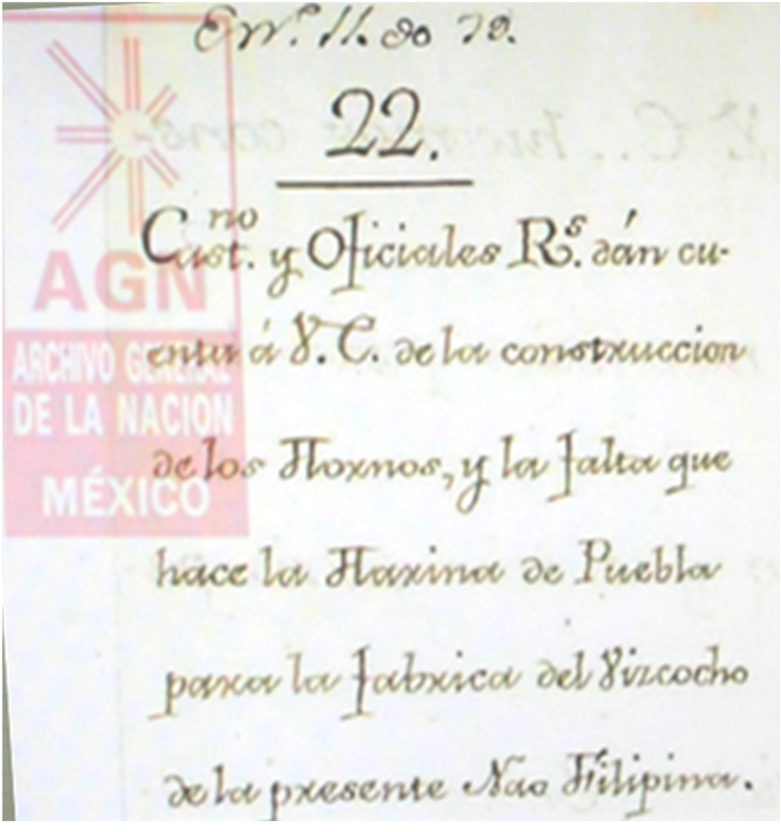 En.º 11. de 79.
22.
Cast.no y Oficiales R.s dán cu-
enta á V. E. de la construccion
de los Hornos, y la falta que
hace la Harina de Puebla
para la fabrica del Vizcocho
de la presente Nao Filipina.
AGN
ARCHIVO GENERAL
DE LA NACION
MÉXICO